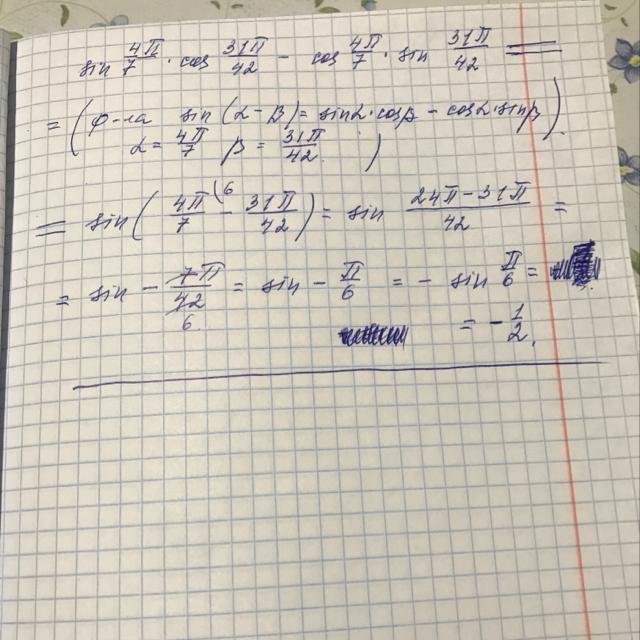 sin 4π/7 · cos 31π/42 − cos 4π/7 · sin 31π/42 =
= (ф-ла sin (α − β) = sinα·cosβ − cosα·sinβ)
α = 4π/7 β = 31π/42 )
= sin( 4π/7 \6 − 31π/42 ) = sin 24π − 31π/42 =
= sin − 7π/42 6 = sin − π/6 = − sin π/6 =
= − 1/2.